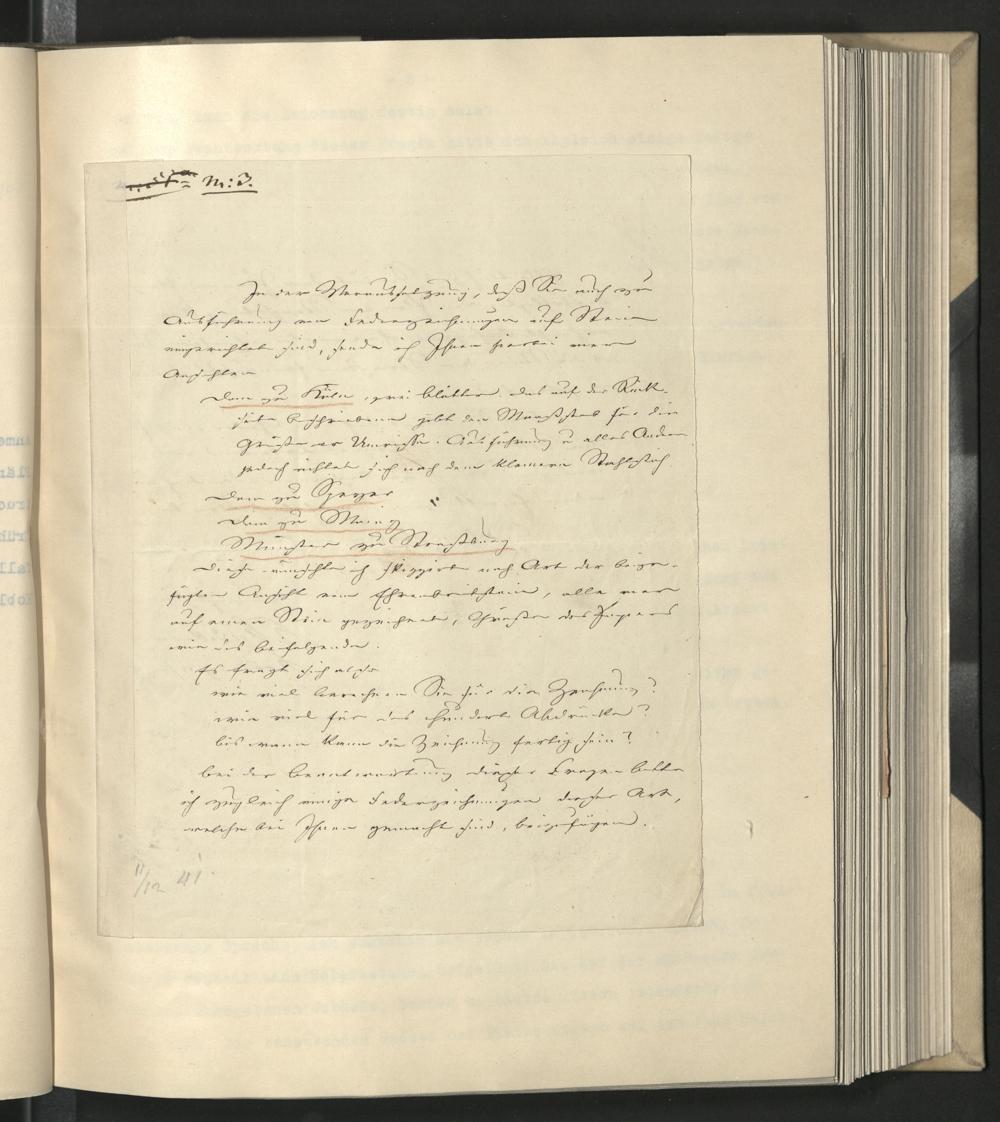 M: B.
In der Voraussetzung, daß Sie auch zur
Ausführung von Federzeichnungen auf Stein
eingerichtet sind, sende ich Ihnen hierbei vier
Ansichten
Dom zu Köln, zwei Blätter. das auf der Rück-
seite beschriebene giebt den Maaßstab für die
Größe der Umrisse. Ausführung u alles Andere
jedoch richtet sich nach dem kleinern Stahlstich.
Dom zu Speyer
Dom zu Mainz
Münster zu Straßburg
Diese wünschte ich skizzirt nach Art der beige-
fügten Ansicht von Ehrenbreitstein, alle vier
auf einen Stein gezeichnet, Größe des Papiers
wie das beifolgende.
Es fragt sich also
wie viel berechnen Sie für die Zeichnung?
wie viel für das hundert Abdrücke?
bis wann kann die Zeichnung fertig sein?
bei der Beantwortung dieser Fragen bitte
ich zugleich einige Federzeichnungen dieser Art,
welche bei Ihnen gemacht sind, beizufügen.
11/12 41